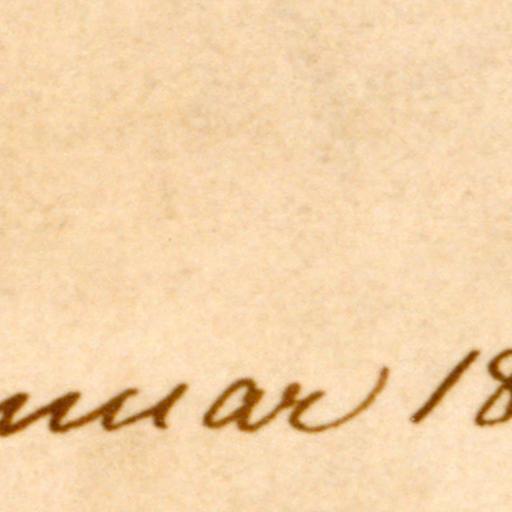 nuar 18